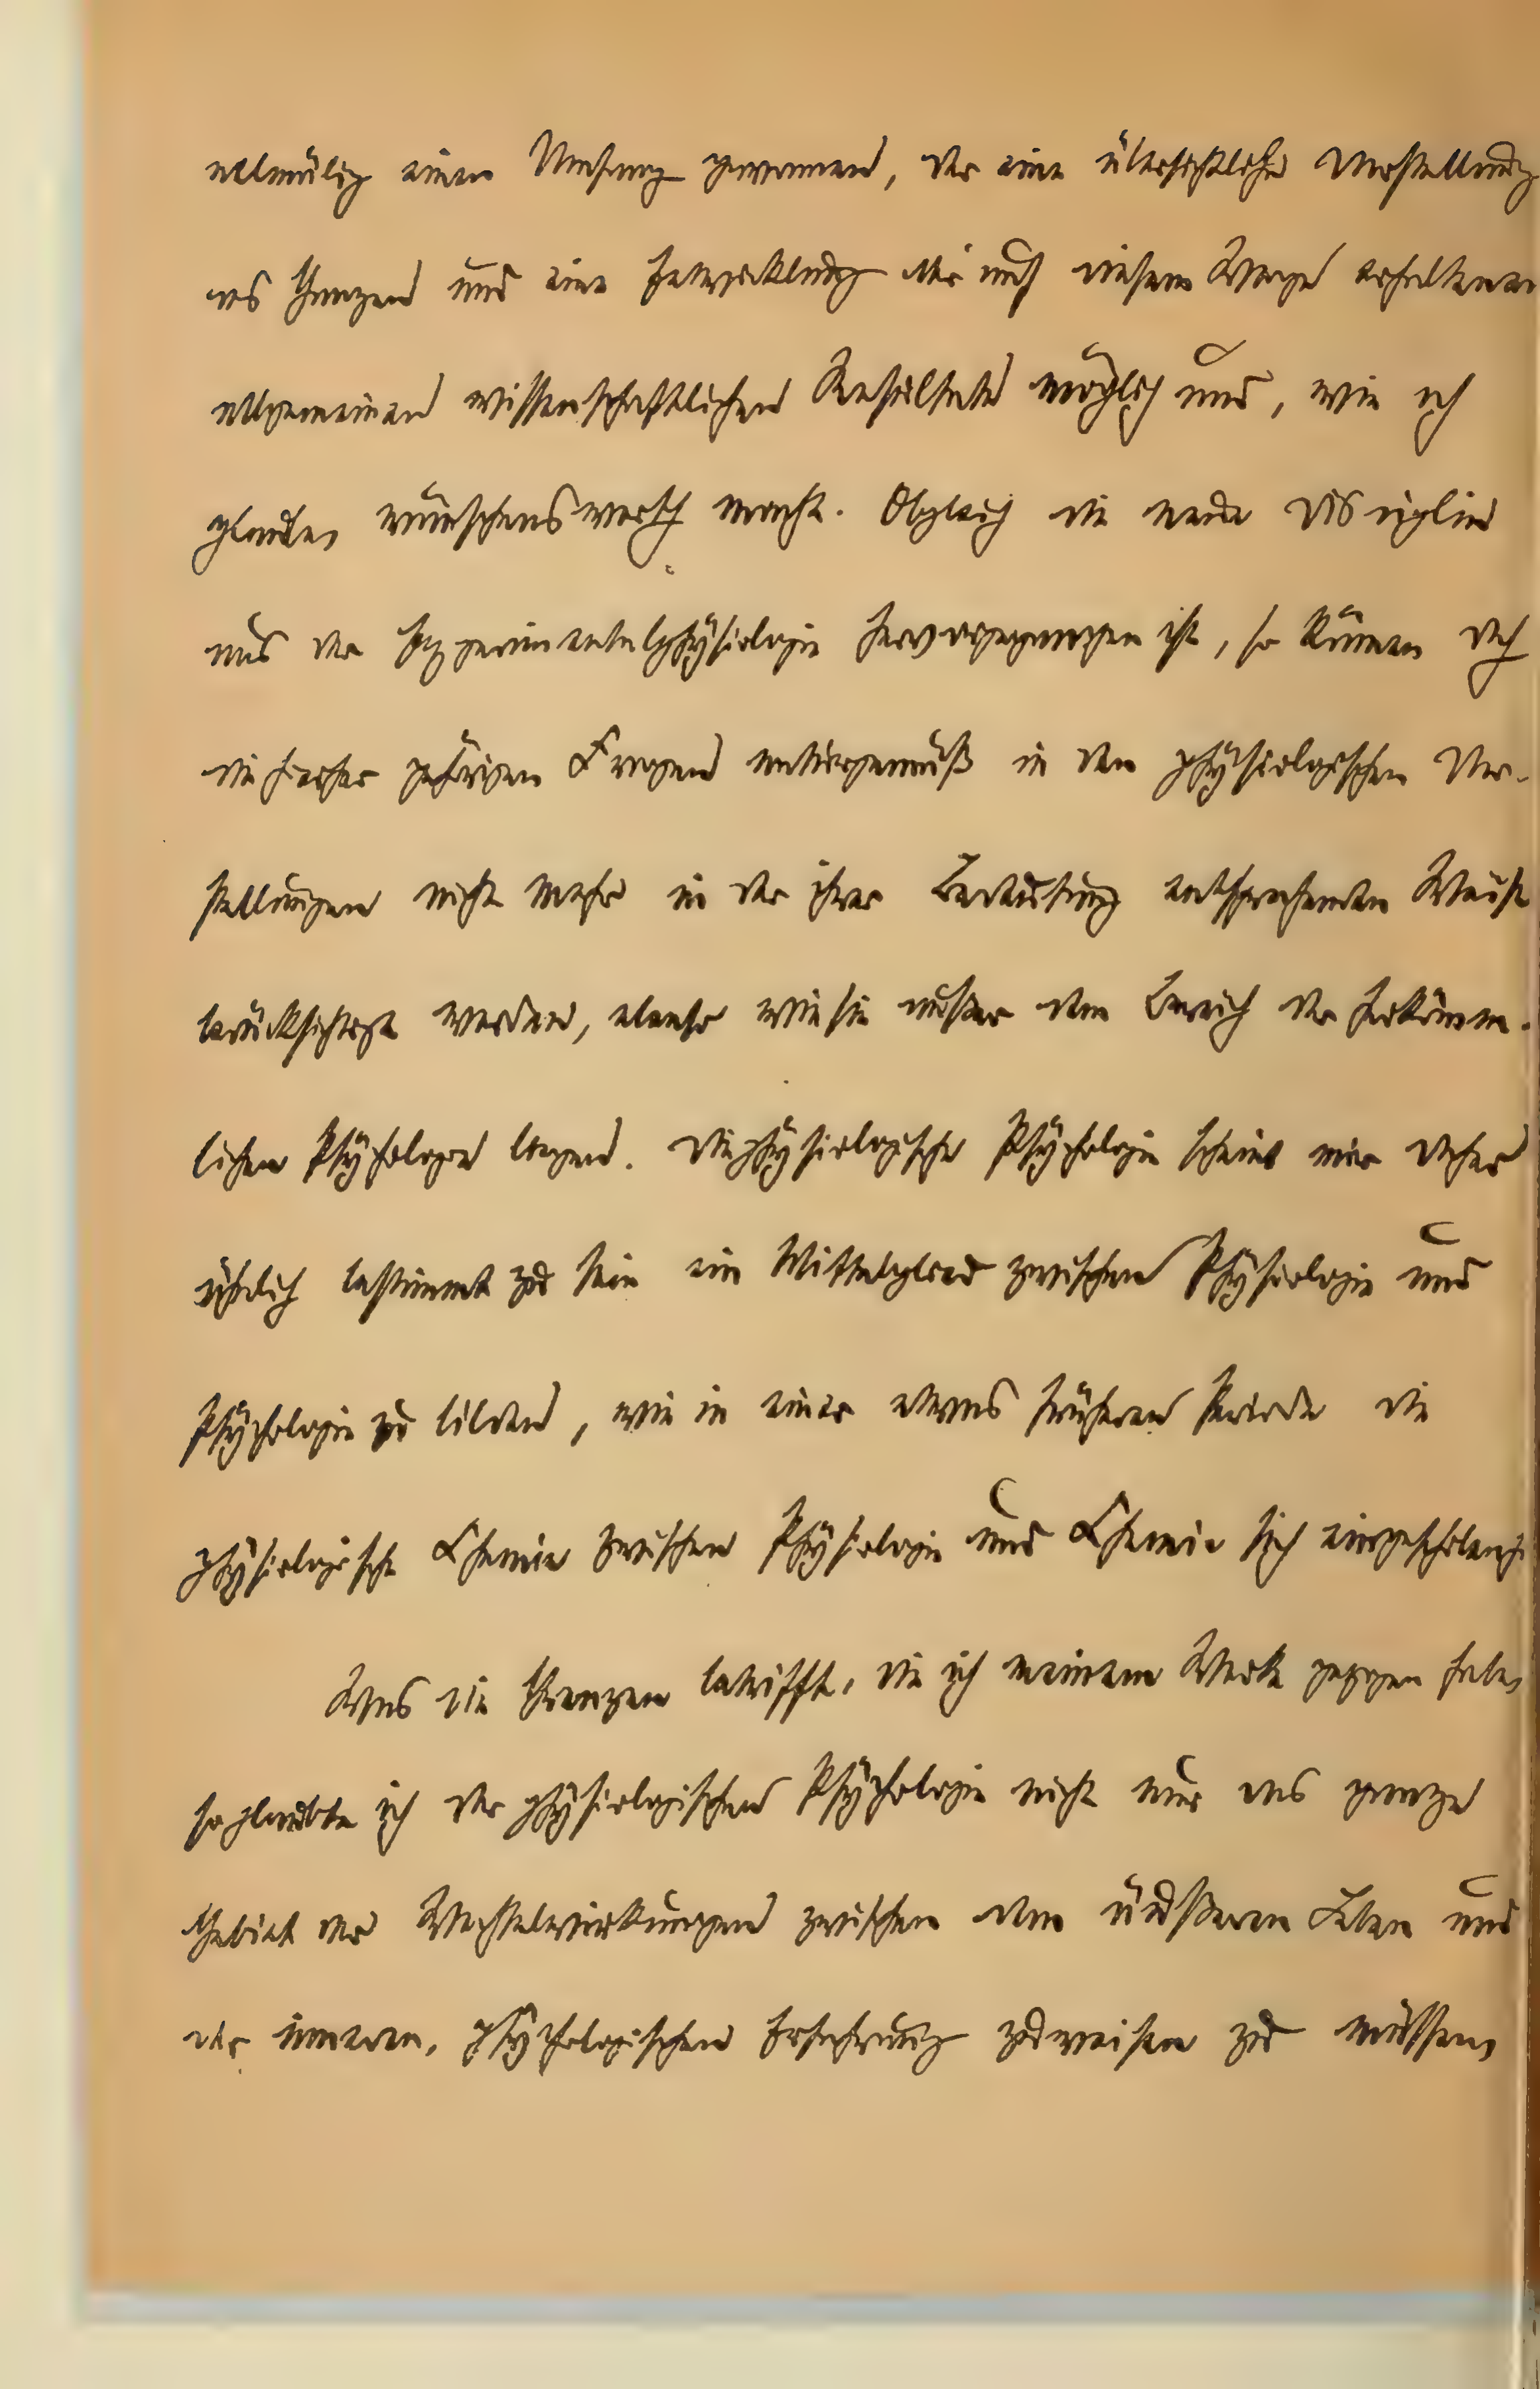 allmälig einen Umfang gewonnen, der eine übersichtliche Darstellung
des Ganzen und eine Entwicklung der auf diesem Wege erhaltenen
allgemeinen wissenschaftlichen Resultate möglich und, wie ich
glaube, wünschenswerth macht. Obgleich die neue Disciplin
aus der Experimentalphysiologie hervorgegangen ist, so können doch
die hierher gehörigen Fragen naturgemäß in den physiologischen Dar-
stellungen nicht mehr in der ihrer Bedeutung entsprechenden Weise
berücksichtigt werden, ebenso wie sie außer dem Bereich der herkömm-
lichen Psychologie liegen. Die physiologische Psychologie scheint mir daher
ähnlich bestimmt zu sein ein Mittelglied zwischen Physiologie und
Psychologie zu bilden, wie in einer etwas früheren Periode die
physiologische Chemie zwischen Physiologie und Chemie sich eingeschoben
Was die Grenzen betrifft, die ich meinem Werk gezogen habe,
so glaubte ich der physiologischen Psychologie nicht nur das ganze
Gebiet der Wechselwirkungen zwischen dem äußeren Leben und
der inneren, psychologischen Erfahrung zuweisen zu müssen,